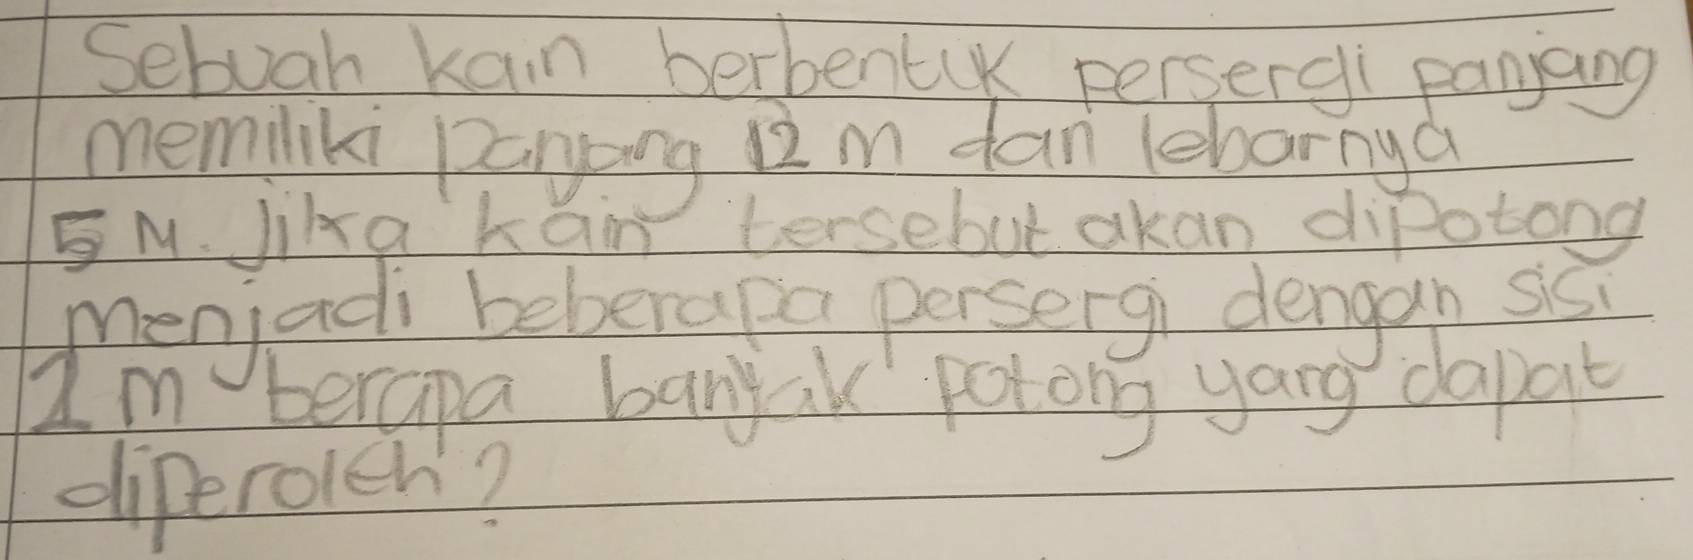 Sebuah kain berbentuk persergi panjang
memiliki panjang 12 m dan lebarnya
5 M. Jika kain tersebut akan dipotong
menjadi beberapa persergi dengan sisi
1 m berapa banyak potong yang dapat
diperoleh?